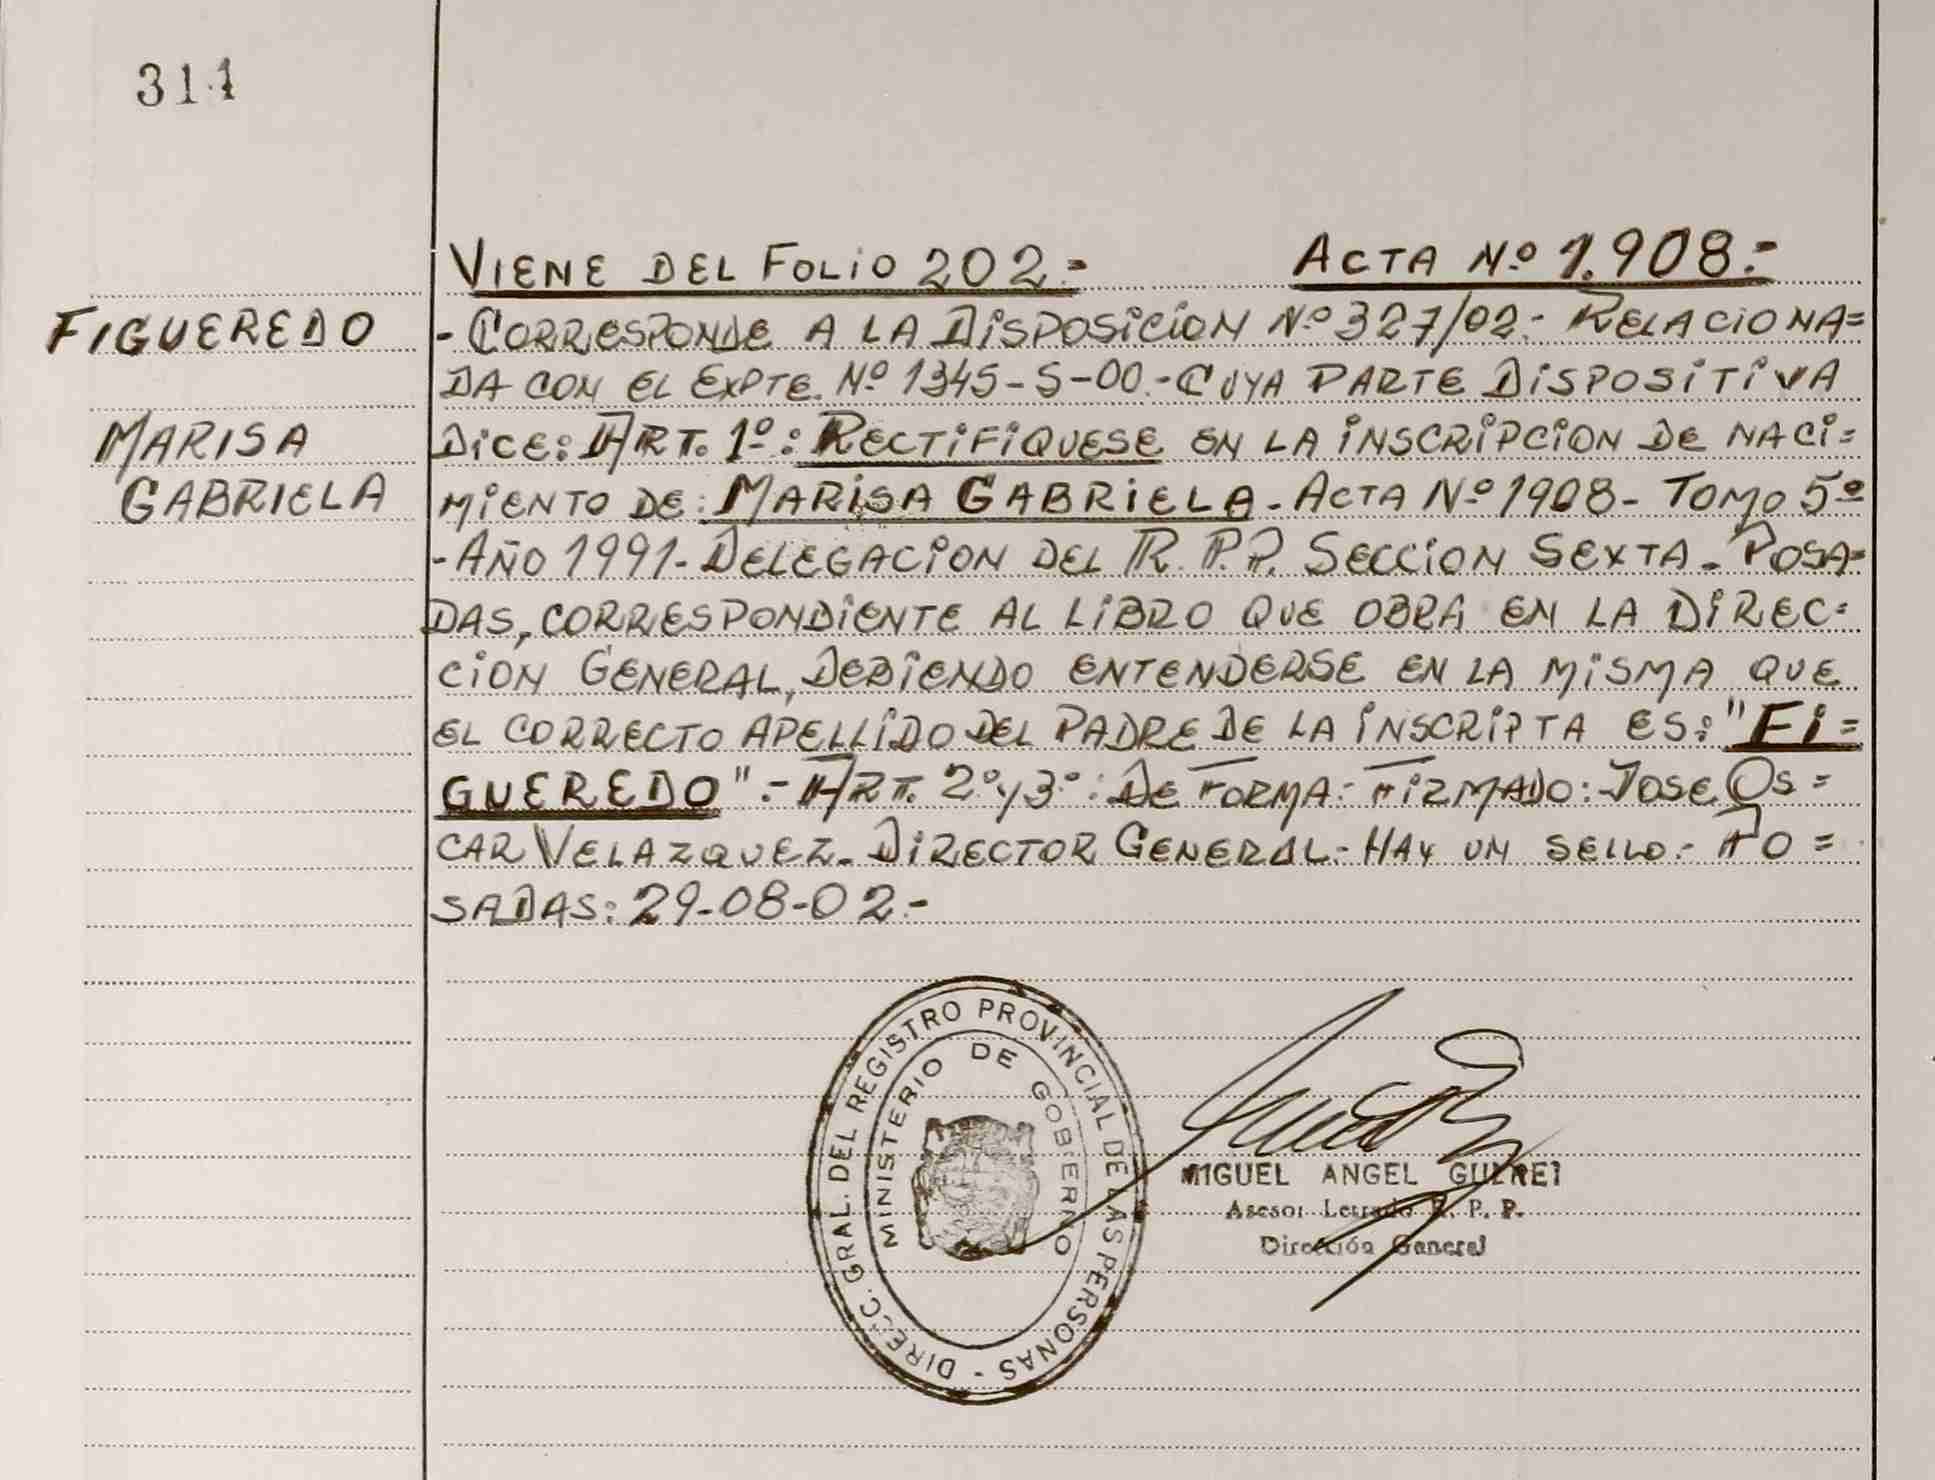 311
VIENE DEL FOLIO 202.- ACTA Nº 1.908.-
FIGUEREDO
MARISA
GABRIELA
- CORRESPONDE A LA DISPOSICION Nº 327/02.- RELACIONA=
DA CON EL EXPTE. Nº 1345-S-00.- CUYA PARTE DISPOSITIVA
DICE: ART. 1º: RECTIFIQUESE EN LA INSCRIPCION DE NACI=
MIENTO DE: MARISA GABRIELA - ACTA Nº 1908 - TOMO 5º
- AÑO 1991 - DELEGACION DEL R.P.P. SECCION SEXTA - POSA=
DAS, CORRESPONDIENTE AL LIBRO QUE OBRA EN LA DIREC=
CION GENERAL, DEBIENDO ENTENDERSE EN LA MISMA QUE
EL CORRECTO APELLIDO DEL PADRE DE LA INSCRIPTA ES: "FI=
GUEREDO".- ART. 2º y 3º: DE FORMA.- FIRMADO: JOSE OS=
CAR VELAZQUEZ - DIRECTOR GENERAL.- HAY UN SELLO.- PO=
SADAS: 29-08-02.-
DIRECC. GRAL. DEL REGISTRO PROVINCIAL DE LAS PERSONAS -
MINISTERIO DE GOBIERNO
MIGUEL ANGEL
Asesor Letrado R. P. P.
Dirección General